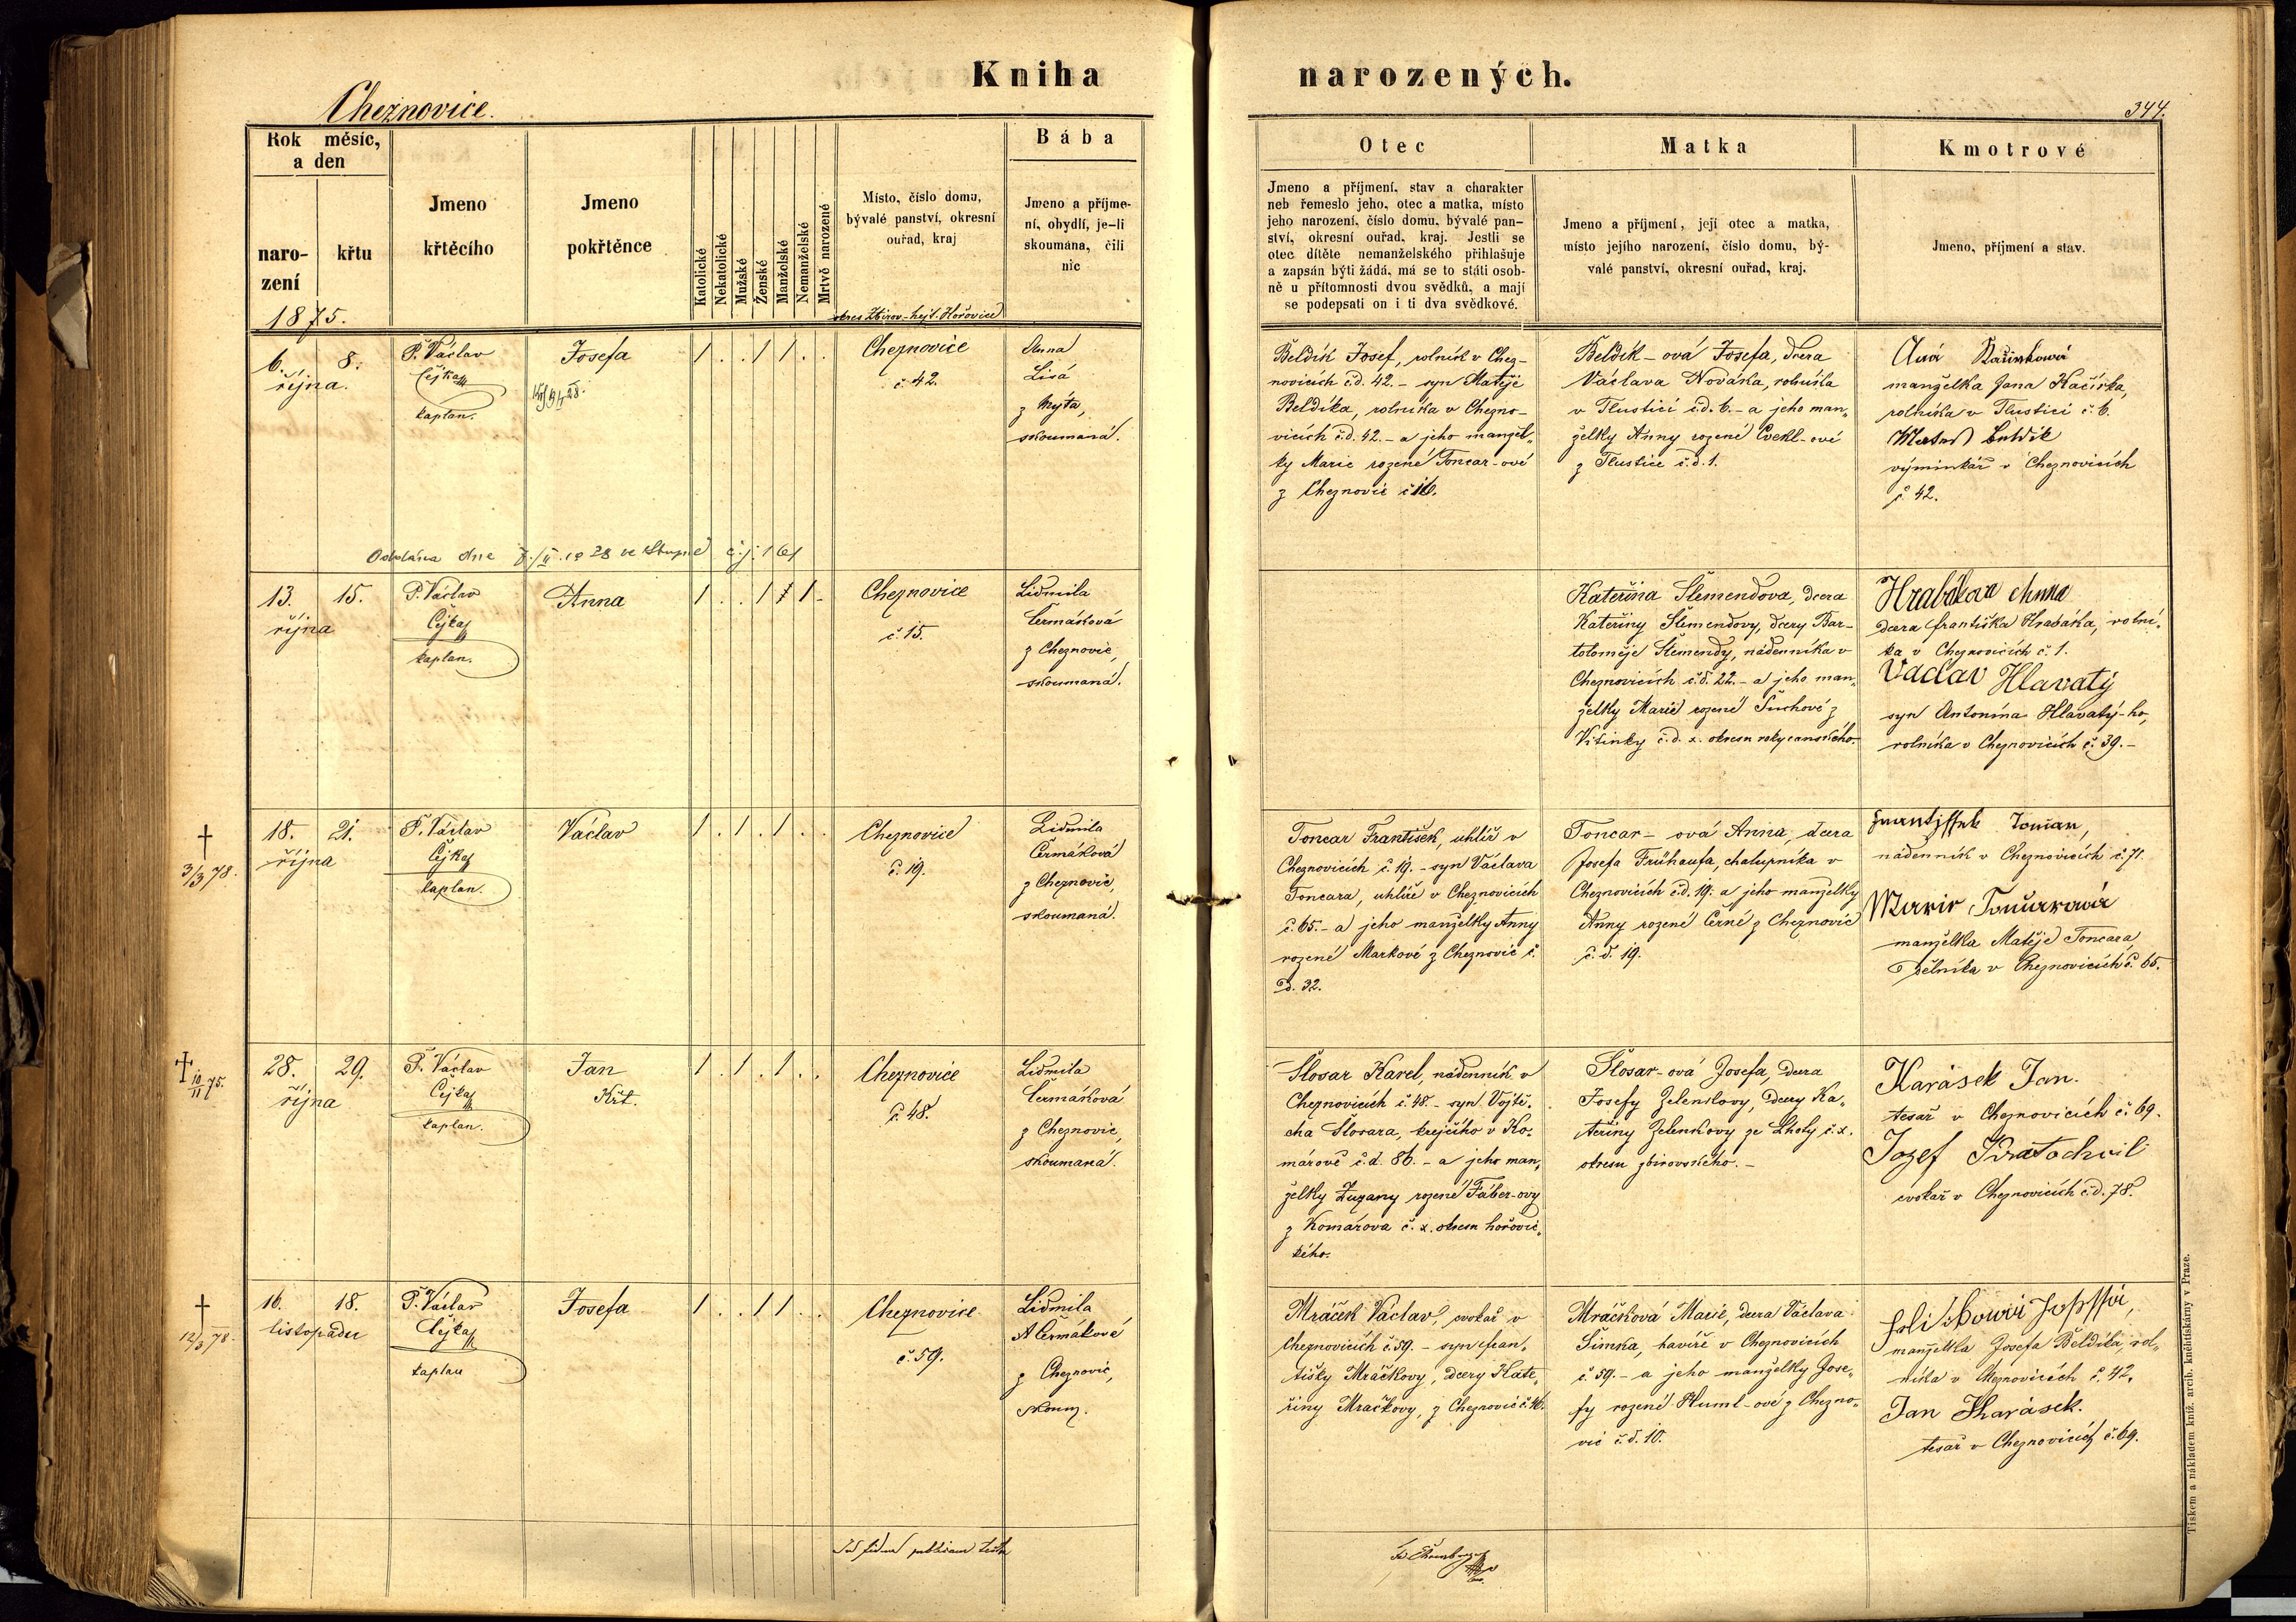 Kniha narozených.
Cheznovice.
344.
Rok měsíc, a den
naro-
zení
křtu
1875.
Jmeno
křtěcího
Jmeno
pokřtěnce
Katolické
Nekatolické
Mužské
Ženské
Manželské
Nemanželské
Mrtvě narozené
Místo, číslo domu,
bývalé panství, okresní
ouřad, kraj
okres Zbirov - hejt. Hořovice
Bába
Jmeno a příjme-
ní, obydlí, je-li
skoumána, čili
nic
Otec
Jmeno a příjmení, stav a charakter
neb řemeslo jeho, otec a matka, místo
jeho narození, číslo domu, bývalé pan-
ství, okresní ouřad, kraj. Jestli se
otec dítěte nemanželského přihlašuje
a zapsán býti žádá, má se to státi osob-
ně u přítomnosti dvou svědků, a mají
se podepsati on i ti dva svědkové.
Matka
Jmeno a příjmení, její otec a matka,
místo jejího narození, číslo domu, bý-
valé panství, okresní ouřad, kraj.
Kmotrové
Jmeno, příjmení a stav.
6. 8.
října.
P. Václav
Čejka
kaplan.
Josefa
1 . . 1 1 . .
Cheznovice
č. 42.
Anna
Lisá
z Mýta,
skoumaná.
Beldík Josef, rolník v Chez-
novicích č.d. 42. - syn Matěje
Beldíka, rolníka v Chezno-
vicích č.d. 42. - a jeho manžel-
ky Marie rozené Toncar-ové
z Cheznovic č. 16.
Beldík-ová Josefa, dcera
Václava Nováka, rolníka
v Tlustici č.d. 6. - a jeho man-
želky Anny rozené Cvekl-ové
z Tlustice č.d. 1.
manželka Jana Kačírka,
rolníka v Tlustici č. 6.
výminkář v Cheznovicích
č. 42.
Oddána dne
č.j. 161
13. 15.
října
P. Václav
Čejka
kaplan.
Anna
1 . . 1 1 1 .
Cheznovice
č. 15.
Lidmila
Čermáková
z Cheznovic,
skoumaná.
Kateřina Šlemendova, dcera
Kateřiny Šlemendovy, dcery Bar-
toloměje Šlemendy, nádenníka v
Cheznovicích č.d. 22. - a jeho man-
želky Marie rozené Suchové z
Vitinky č.d. x. okresu rokycanského.
Hrabákova Anna
dcera Františka Hrabáka, rolní-
ka v Cheznovicích č. 1.
Vaclav Hlavatý
syn Antonína Hlavatý-ho,
rolníka v Cheznovicích č. 39. -
† 3/3 78.
18. 21.
října
P. Václav
Čejka
kaplan.
Václav
1 . 1 . 1 . .
Cheznovice
č. 19.
Lidmila
Čermáková
z Cheznovic,
skoumaná.
Toncar František, uhlíř v
Cheznovicích č. 19. - syn Václava
Toncara, uhlíře v Cheznovicích
č. 65. - a jeho manželky Anny
rozené Markové z Cheznovic č.
d. 32.
Toncar-ová Anna, dcera
Josefa Frühaufa, chalupníka v
Cheznovicích č.d. 19. a jeho manželky
Anny rozené Černé z Cheznovic
č. d. 19.
nádenník v Cheznovicích č. 71.
manželka Matěje Toncara,
dělníka v Cheznovicích č. 65.
† 10/11 75.
28. 29.
října
P. Václav
Čejka
kaplan.
Jan
Křt.
1 . 1 . 1 . .
Cheznovice
č. 48.
Lidmila
Čermáková
z Cheznovic,
skoumaná.
Šlosar Karel, nádenník v
Cheznovicích č. 48. - syn Vojtě-
cha Šlosara, krejčího v Ko-
márově č.d. 86. - a jeho man-
želky Zuzany rozené Fáber-ovy
z Komárova č. x. okresu hořovic-
kého.
Šlosar-ová Josefa, dcera
Josefy Zelenkovy, dcery Ka-
teřiny Zelenkovy ze Lhoty č. x.
okresu zbirovského. -
Karásek Jan.
tesař v Cheznovicích č. 69.
Jozef Kratochvil
cvokař v Cheznovicích č.d. 78.
† 12/3 78.
16. 18.
listopadu
P. Václav
Čejka
kaplan
Josefa
1 . . 1 1 . .
Cheznovice
č. 59.
Lidmila
Čermákové
z Cheznovic,
skoum.
Mráček Václav, cvokař v
Cheznovicích č. 59. - syn Fran-
tišky Mráčkovy, dcery Kate-
řiny Mračkovy, z Cheznovic č. 46.
Mráčková Marie, dcera Václava
Šimka, havíře v Cheznovicích
č. 59. - a jeho manželky Jose-
fy rozené Huml-ové z Chezno-
vic č.d. 10.
manželka Josefa Beldíka, rol-
níka v Cheznovicích č. 42.
Jan Kharásek.
tesař v Cheznovicích č. 69.
Tiskem a nákladem kníž. arcib. knihtiskárny v Praze.